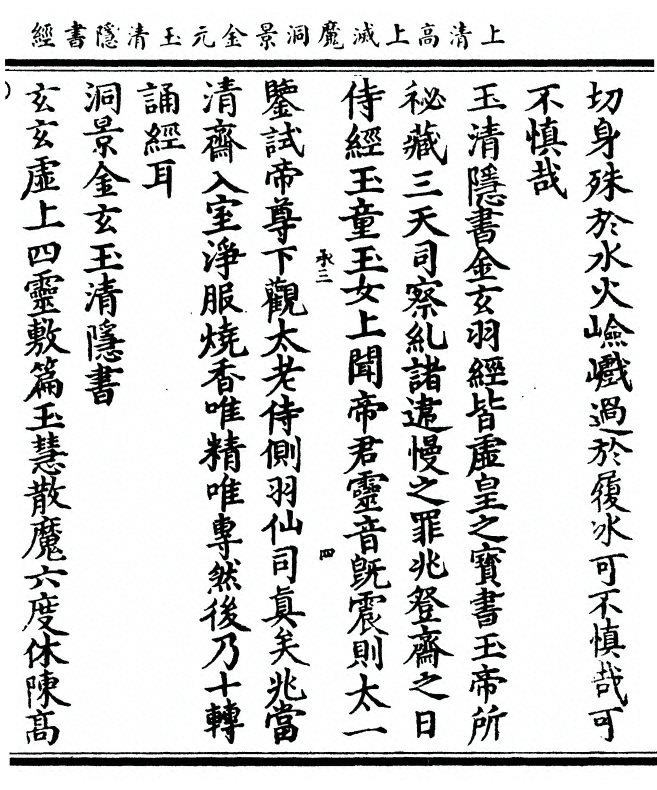 上清高上滅魔洞景金元玉清隱書經
切身殊於水火嶮巇過於履冰可不慎哉可
不慎哉
玉清隱書金玄羽經皆虛皇之寶書玉帝所
秘藏三天司察糺諸違慢之罪兆登齋之日
侍經玉童玉女上聞帝君靈音旣震則太一
承三
四
鑒試帝尊下觀太老侍側羽仙司眞矣兆當
清齋入室淨服燒香唯精唯專然後乃十轉
誦經耳
洞景金玄玉清隱書
玄玄虛上四靈敷篇玉慧散魔六度休陳高